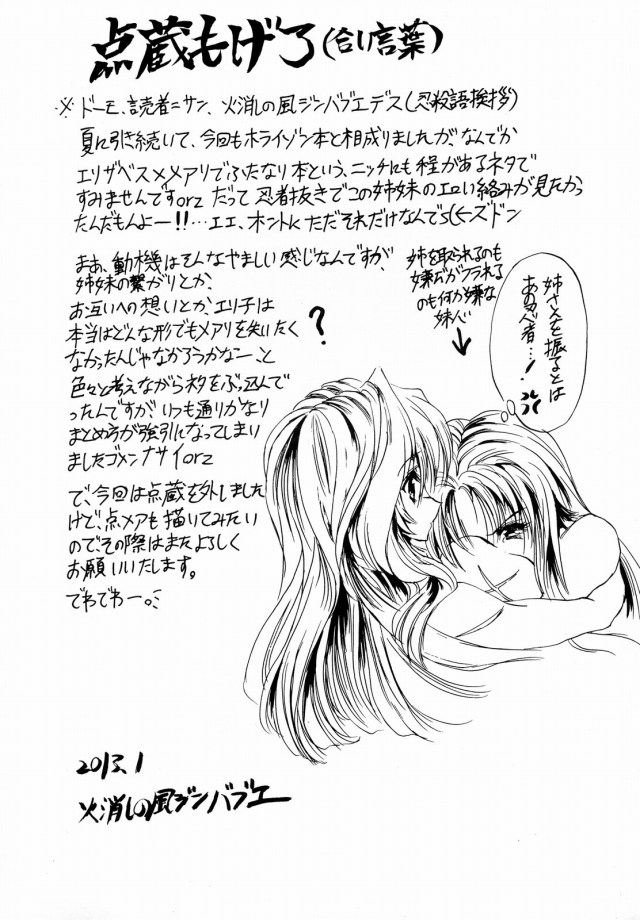 点蔵もげろ(合い言葉)
※ ドーモ、読者=サン、火消しの風ジンバブエデス(忍殺語挨拶)
夏に引き続いて、今回もホライゾン本と相成りましたが、なんでか
エリザベス×メアリでふたなり本という、ニッチにも程があるネタで
すみませんですorz だって忍者抜きでこの姉妹のエロい絡みが見たかっ
たんだもんよー!!…エエ、ホントにただそれだけなんで
ズドン
まあ、動機はそんなやましい感じなんですが、
姉妹の繋がりとか、
お互いへの想いとか、エリ子は
本当はどんな形でもメアリを失いたく
なかったんじゃなかろうかなー、と
色々と考えながらネタをぶっ込んで
ったんですが、いつも通りかなり
まとめ方が強引になってしまい
ましたゴメンナサイorz
で、今回は点蔵を外しました
けど、点メアも描いてみたい
ので、その際はまたよろしく
お願いいたします。
でわでわー。
姉を取られるのも
嫌だがフラれる
のも何か嫌な
妹心
?
姉さんを振るとは
あの忍者…!
2013.1
火消しの風ジンバブエ